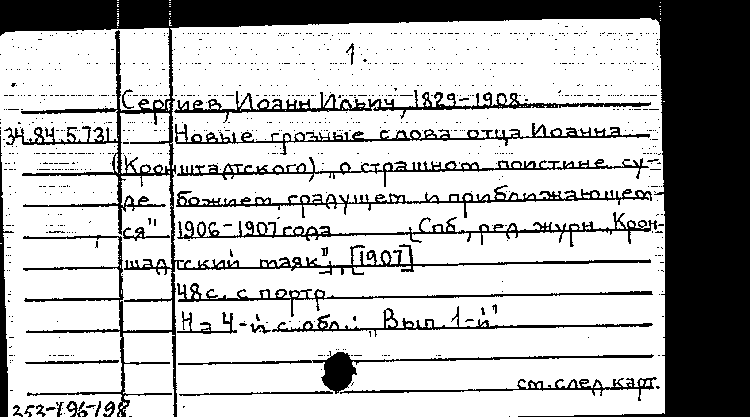 1.
Сергиев, Иоанн Ильич, 1829-1908.
34.84.5.731. Новые грозные слова отца Иоанна
(Кронштадтского) „о страшном поистине су-
де божием, градущем и приближающем-
ся" 1906-1907 года [Спб., ред. журн. „Крон-
шадтский маяк"], [1907]
48 с. с портр.
На 4-й с. обл.: „Вып. 1-й"
см. след. карт.
253-196-198